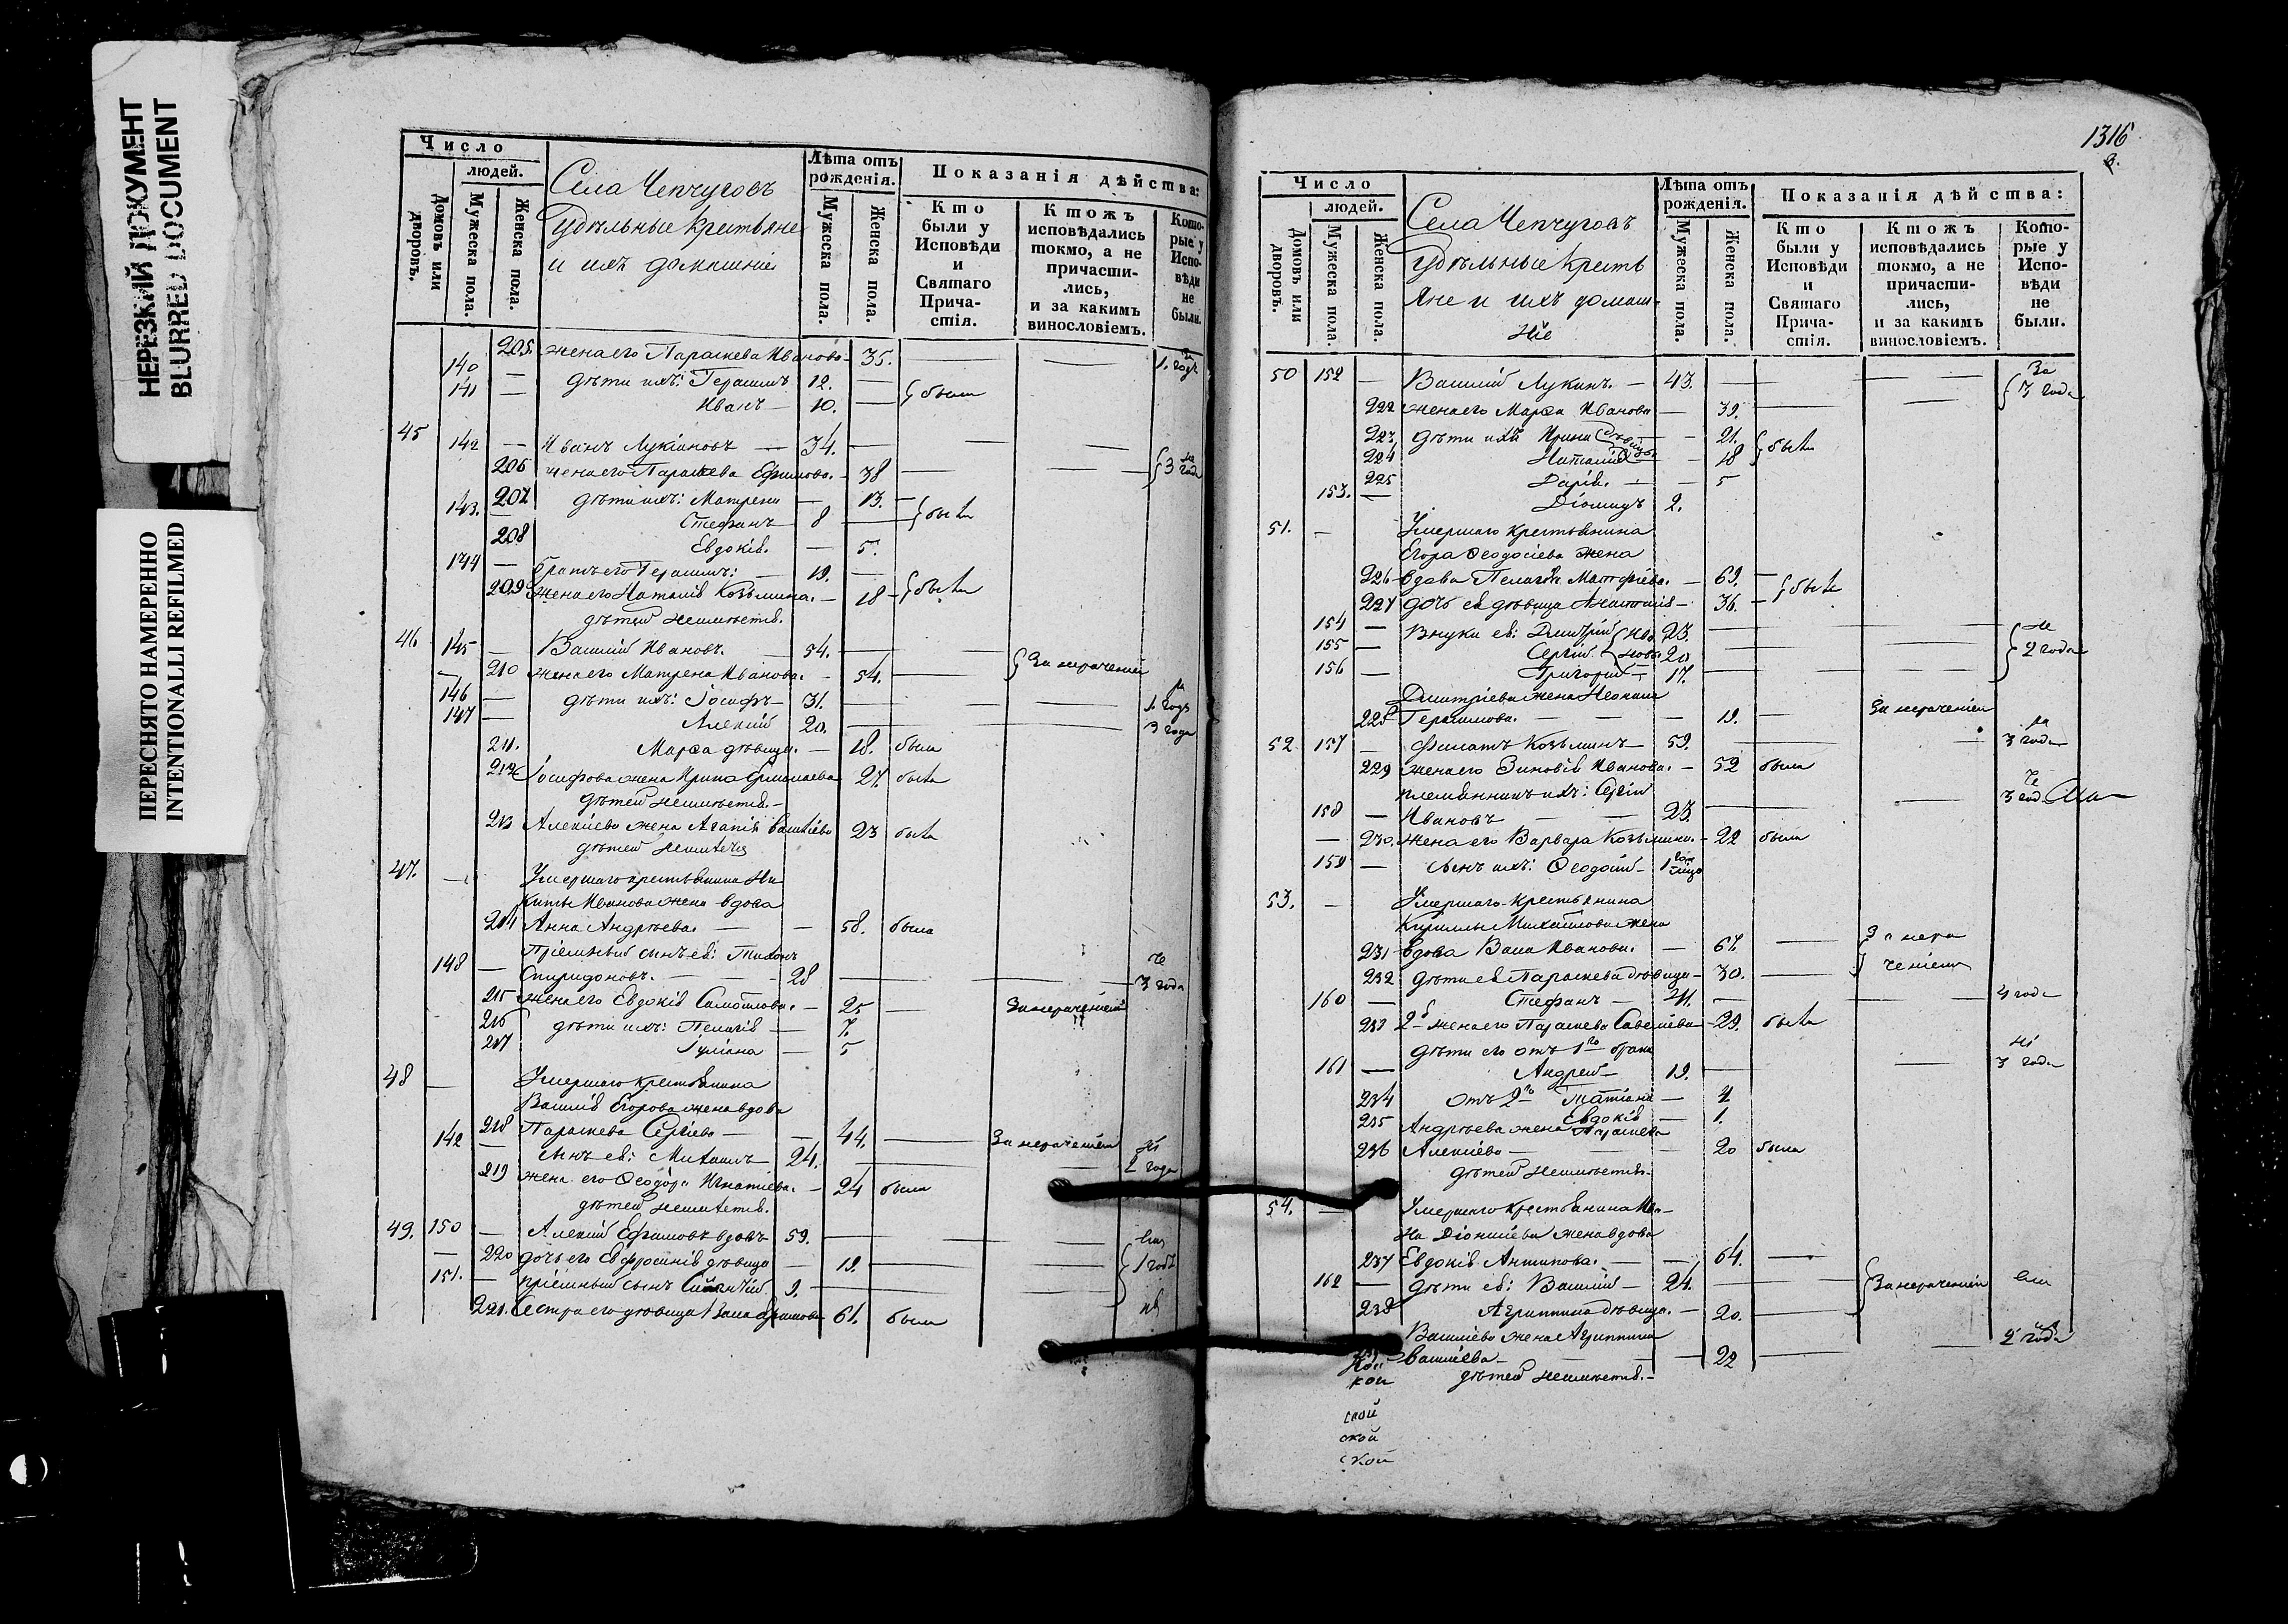 НЕРЕЗКИЙ ДОКУМЕНТ
BLURRED DOCUMENT
ПЕРЕСНЯТО НАМЕРЕННО
INTENTIONALLI REFILMED
Число
людей.
Домовъ или дворовъ.
Мужеска пола.
Женска пола.
Села Чепчуговъ
Удѣльные крестьяне
и ихъ домашніе
Лѣта отъ рожденія.
Мужеска пола.
Женска пола.
Показанія дѣйства:
Кто были у Исповѣди и Святаго Прича-стія.
Ктожъ исповѣдались токмо, а не причасти-лись, и за какимъ винословіемъ.
Кото-рые у Испо-вѣди не были.
205. жена его Параскева Иванова — 35. 1. годъ
140 — дѣти ихъ: Герасимъ 12. —
141 — Иванъ — 10. — были
45 142 — Иванъ Лукіановъ — 34. —
206 жена его Параскева Ефимова. — 38 — 3 года
207 дѣти ихъ: Матрена — 13. —
143. — Стефанъ 8 — были
208 Евдокія. — 5.
144 — братъ его Герасимъ: — 19. —
209 жена его Наталія Козьмина. — 18 — были
дѣтей неимѣетъ.
46 145 — Василій Ивановъ. — 54. —
— 210 жена его Матрена Иванова. — 54. — За нерачениемъ
146 — дѣти ихъ: Іосифъ — 31. — 1. годъ
147 — Алексій 20. — 3 года
211. Марѳа дѣвица. — 18. была
212 Іосифова жена Ирина Ермолаева 27. была
дѣтей неимѣетъ. —
213 Алексіева жена Агапія Василіева 23 была
дѣтей неимѣетъ
47. — Умершаго крестьянина Ни
киты Иванова жена вдова
214 Анна Андрѣева. — — 58. была
Пріемный сынъ ея: Тихонъ
148 — Спиридоновъ. — — 28 — 3 года
215 жена его Евдокія Самойлова. — 25. — За нерачениемъ
216 дѣти ихъ: Пелагія — 7.
217 Іуліана — 5
48 — Умершаго крестьянина
Василія Егорова жена вдова
218 Параскева Сергіева — — 44. — За нерачениемъ
149 — сынъ ея: Михаилъ — 24. — 2 года
219 жена его Ѳеодора Игнатіева. — 24 была
дѣтей неимѣетъ.
49. 150 — Алексій Ефимовъ вдовъ 59. —
— 220 дочь его Евфросинія дѣвица — 19. — 1 годъ
151. — пріемный сынъ 9. —
221. Сестра его дѣвица Васса Ефимова 61. была
1316
Число
людей.
Домовъ или дворовъ.
Мужеска пола.
Женска пола.
Села Чепчуговъ
Удѣльные кресть
яне и ихъ домаш-
ніе
Лѣта отъ рожденія.
Мужеска пола.
Женска пола.
Показанія дѣйства:
Кто были у Исповѣди и Святаго Прича-стія.
Ктожъ исповѣдались токмо, а не причасти-лись, и за какимъ винословіемъ.
Кото-рые у Испо-вѣди не были.
50 152 — Василій Лукинъ. — 43. — За 3 года
222 жена его Марѳа Иванова — 39. —
223 дѣти ихъ Ирина — 21.
224 Наталія — 18 были
225 Дарія. — — 5
153. — Діомидъ 2.
51. — Умершаго крестьянина
Егора Ѳеодосіева жена
226 вдова Пелагія Матѳіева. — 69. —
227 дочь ея дѣвица Анастасія — 36. — были
154 — Внуки ея: Димитрій 23. —
155 — Сергій 20 — 2 года
156 — Григорій — 17. —
Димитріева жена Неонила
228 Герасимова. — — — 19. — За нерачениемъ
52 157 — Филатъ Козьминъ — 59. — 3 года
229 жена его Зиновія Иванова. — 52 была
племянникъ ихъ: Сергій
158 — Ивановъ — — 23 — 3 года
— 230. жена его Варвара Козьмина. — 22 была
159 — сынъ ихъ: Ѳеодосій — 1
53. — Умершаго крестьянина
Кирилы Михайлова жена
231 вдова Васса Иванова. — 67. — За нера
232 дѣти ея Параскева дѣвица — 30. — ченіемъ
160 — Стефанъ — 41. — 4 года
233 2я жена его Параскева Савеліева — 29. была
дѣти его отъ 1го брака
161 — Андрей — 19. — 3 года
234 отъ 2го Татіана — 4
235 Евдокія — 1.
Андрѣева жена Параскева
236 Алексіева — — — 20 была
дѣтей неимѣетъ —
54. — Умершаго крестьянина Ива-
на Діонисіева жена вдова
237 Евдокія Антипова. — — 64. —
162 — дѣти ея: Василій — 24. — За нерачениемъ
238 Агриппина дѣвица. — 20. —
Василіева жена Агриппина
Василіева — — — 22 — 2 года
дѣтей неимѣетъ. —
кой
ской
ской
ской